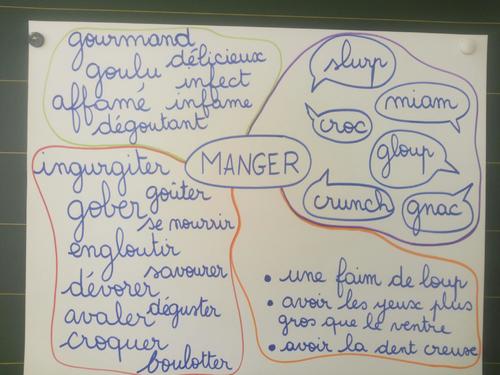 gourmand
délicieux
goulu
infect
affamé infâme
dégoutant
slurp
miam
croc
gloup
crunch
gnac
MANGER
ingurgiter
goûter
gober
se nourrir
engloutir
savourer
dévorer
déguster
avaler
croquer
boulotter
• une faim de loup
• avoir les yeux plus
gros que le ventre
• avoir la dent creuse